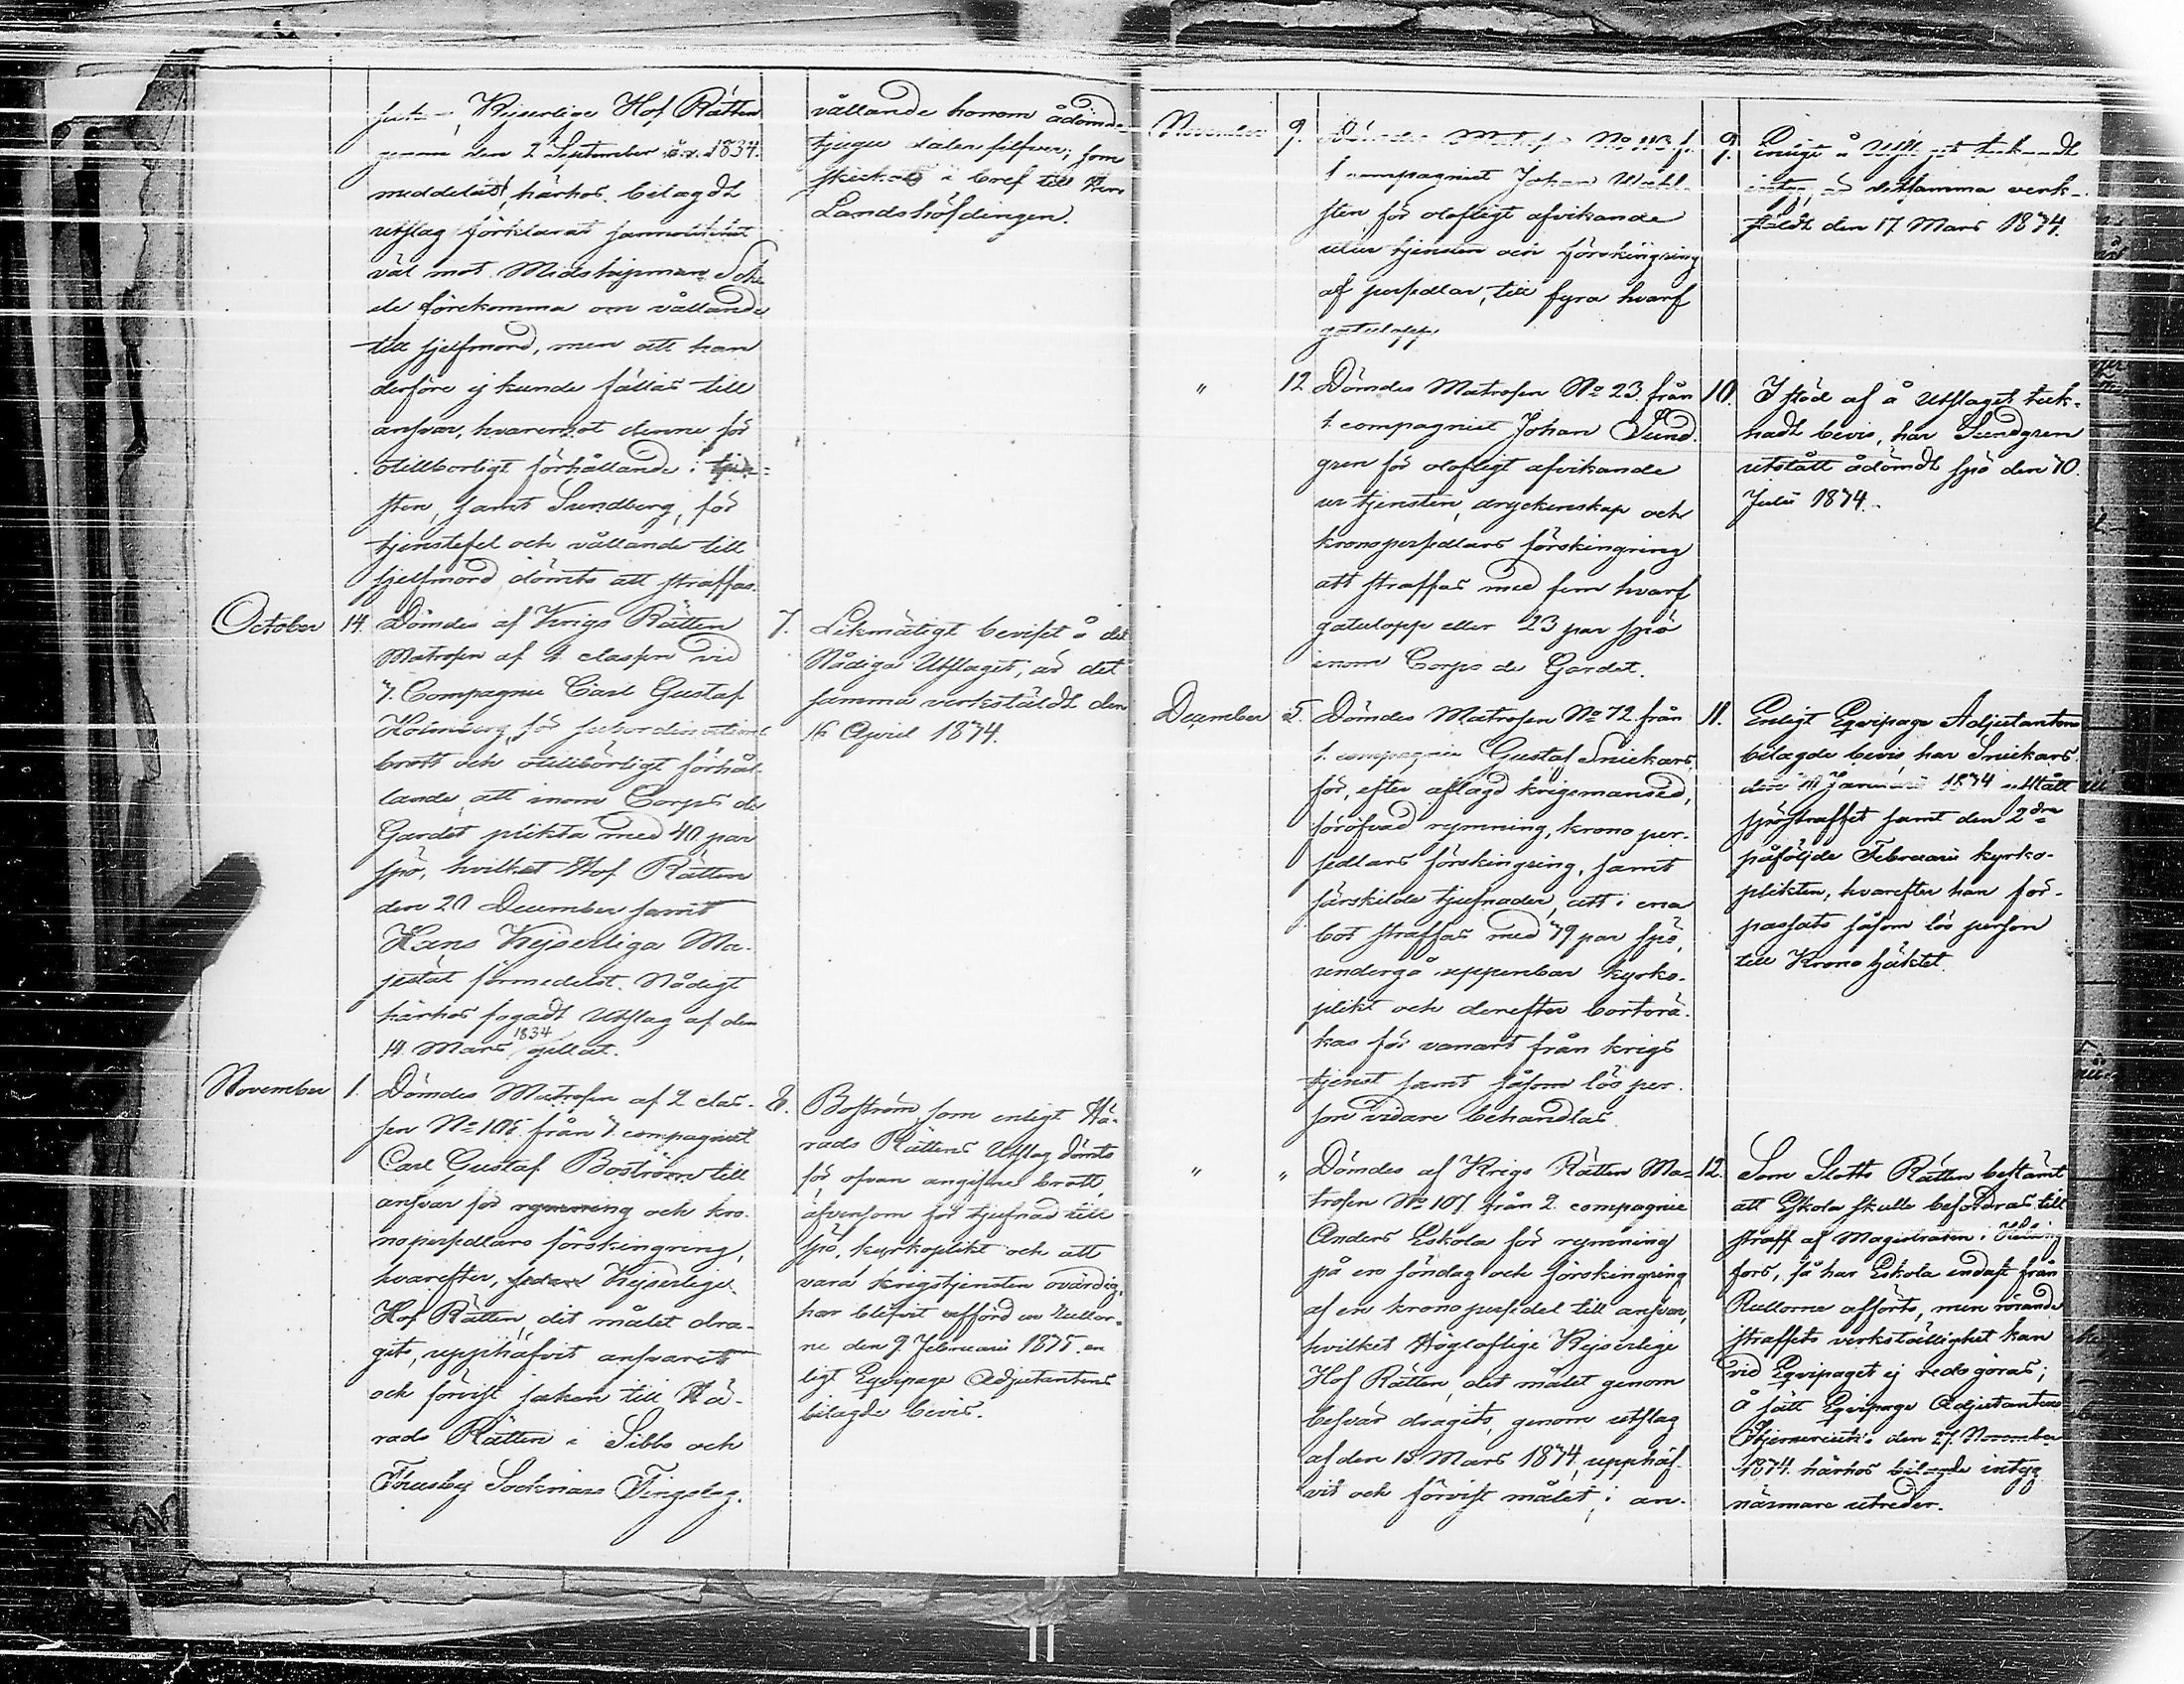 Kejserlige Hof Rätten
genom den 2 September 1834.
meddelat, härhos bilagdt
utslag förklarat sannolikhet
väl mot Midshipman
de förekomma om vållande
till sjelfmord, men att han
derföre ej kunde fällas till
ansvar, hvaremot denne för
otillborligt förhållande i tjen-
sten, samt Sundberg, för
tjenstefel och vållande till
sjelfmord dömts att straffas.
vållande honom ådömde
tjugu daler silfver, som
skickats i bref till Herr
Landshöfdingen.
October 14. Dömdes af Krigs Rätten
Matrosen af 1 classen vid
7. Compagnie Carl Gustaf
Holmberg, för subordinations
brott och otillbörligt förhål-
lande, att inom Corps de
Gardet plikta med 40 par
spö, hvilket Hof Rätten
den 20 December samt
Hans Kejserliga Ma-
jestät förmedelst Nådigt
härhos fogadt Utslag af den
14 Mars 1834 gillat.
7. Likmätigt beviset å det
Nådiga Utslaget, är det
samma verkstäldt den
16 April 1874.
November 1. Dömdes Matrosen af 2 clas-
sen No 105 från 7. compagniet
Carl Gustaf Boström till
ansvar för rymning och kro-
nopersedlars förskingring,
hvarefter, sedan Kejserlige
Hof Rätten, dit målet dra-
gits, upphäfvit ansvaret
och förvist saken till Hä-
rads Rätten i Sibbo och
Thusby Socknars Tingslag.
8. Boström som enligt Hä-
rads Rättens Utslag dömts
för ofvan angifne brott,
äfvensom för tjufnad till
spö, kyrkoplikt och att
vara krigstjensten ovärdig,
har blifvit afförd ur Rullor-
ne den 9 Februarii 1875 en-
ligt Eqvipage Adjutantens
bilagde bevis.
November 9. Dömdes Matrosen No 113 f.
1 compagniet Johan Wahl-
sten för olofligt afvikande
utur tjensten och förskingring
af persedlar, till fyra hvarf
gatulopp
9. Enligt å Utslaget tecknadt
intyg, är detsamma verk-
stäldt den 17 Mars 1874.
" 12. Dömdes Matrosen No 23. från
1. compagniet Johan Sund-
gren för olofligt afvikande
ur tjensten, dryckenskap och
kronopersedlars förskingring
att straffas med fem hvarf
gatulopp eller 23 par spö
inom Corps de Gardet.
10. I stöd af å Utslaget teck-
nadt bevis, har Sundgren
utstått ådömdt spö den 10.
Julii 1874.
December 5. Dömdes Matrosen No 72. från
1. compagnie Gustaf Snickars,
för, efter aflagd krigsmansed,
föröfvad rymning, krono per-
sedlars förskingring, samt
särskilde tjufnader, att i ena
bot straffas med 79 par spö,
undergå uppenbar kyrko-
plikt och derefter bortdrä-
kas för vanart från krigs
tjenst samt såsom lös per-
son vidare behandlas.
11. Enligt Eqvipage Adjutantens
bilagde bevis, har Snickars
den Januarii 1874 utstått
spöstraffet samt den 2dre
påföljde Februarii kyrko-
plikten, hvarefter han för-
passats såsom lös person
till Krono häktet.
" " Dömdes af Krigs Rätten Ma-
trosen No 101 från 2. compagnie
Anders Eskola för rymning
på en söndag och förskingring
af en krono persedel till ansvar,
hvilket Höglaflige Kejserlige
Hof Rätten, dit målet genom
besvär dragits, genom utslag
af den 15 Mars 1874, upphäf-
vit och förvist målet, i an-
12. Som Slotts Rätten bestämt
att Eskola skulle befordras till
straff af Magistraten i Helsing
fors, så har Eskola endast från
Rullorne afförts, men rörande
straffets verkställighet kan
vid Eqvipaget ej redogöras;
å sätt Eqvipage Adjutantens
den 27. November
1874. härhos bilagde intyg
närmare utreder.